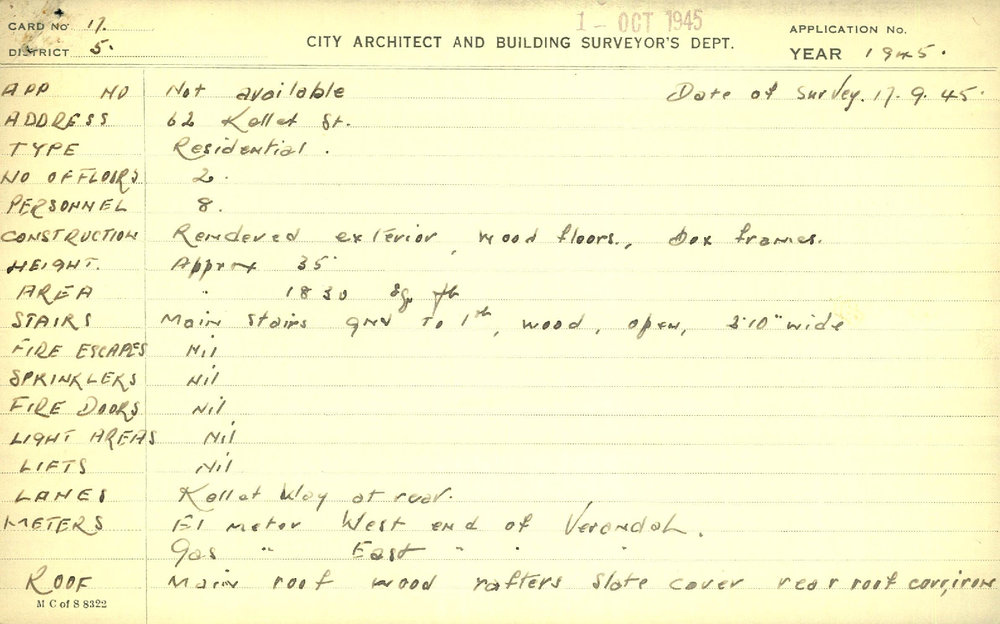 CARD No 17.
1 - OCT 1945
APPLICATION No.
DISTRICT 5.
CITY ARCHITECT AND BUILDING SURVEYOR'S DEPT.
YEAR 1945.
APP NO Not available Date of Survey. 17. 9. 45.
ADDRESS 62 Kellet St.
TYPE Residential.
NO OF FLOORS 2.
PERSONNEL 8.
CONSTRUCTION Rendered exterior, wood floors., box frames.
HEIGHT. Approx 35'
AREA " 1830 sq ft
STAIRS Main stairs gnd to 1st, wood, open, 3'10" wide
FIRE ESCAPES Nil
SPRINKLERS Nil
FIRE DOORS Nil
LIGHT AREAS Nil
LIFTS Nil
LANES Kellet Way at rear.
METERS El meter West end of Verandah.
Gas " East " " "
ROOF Main roof wood rafters slate cover rear roof corr, iron
M C of S 8322